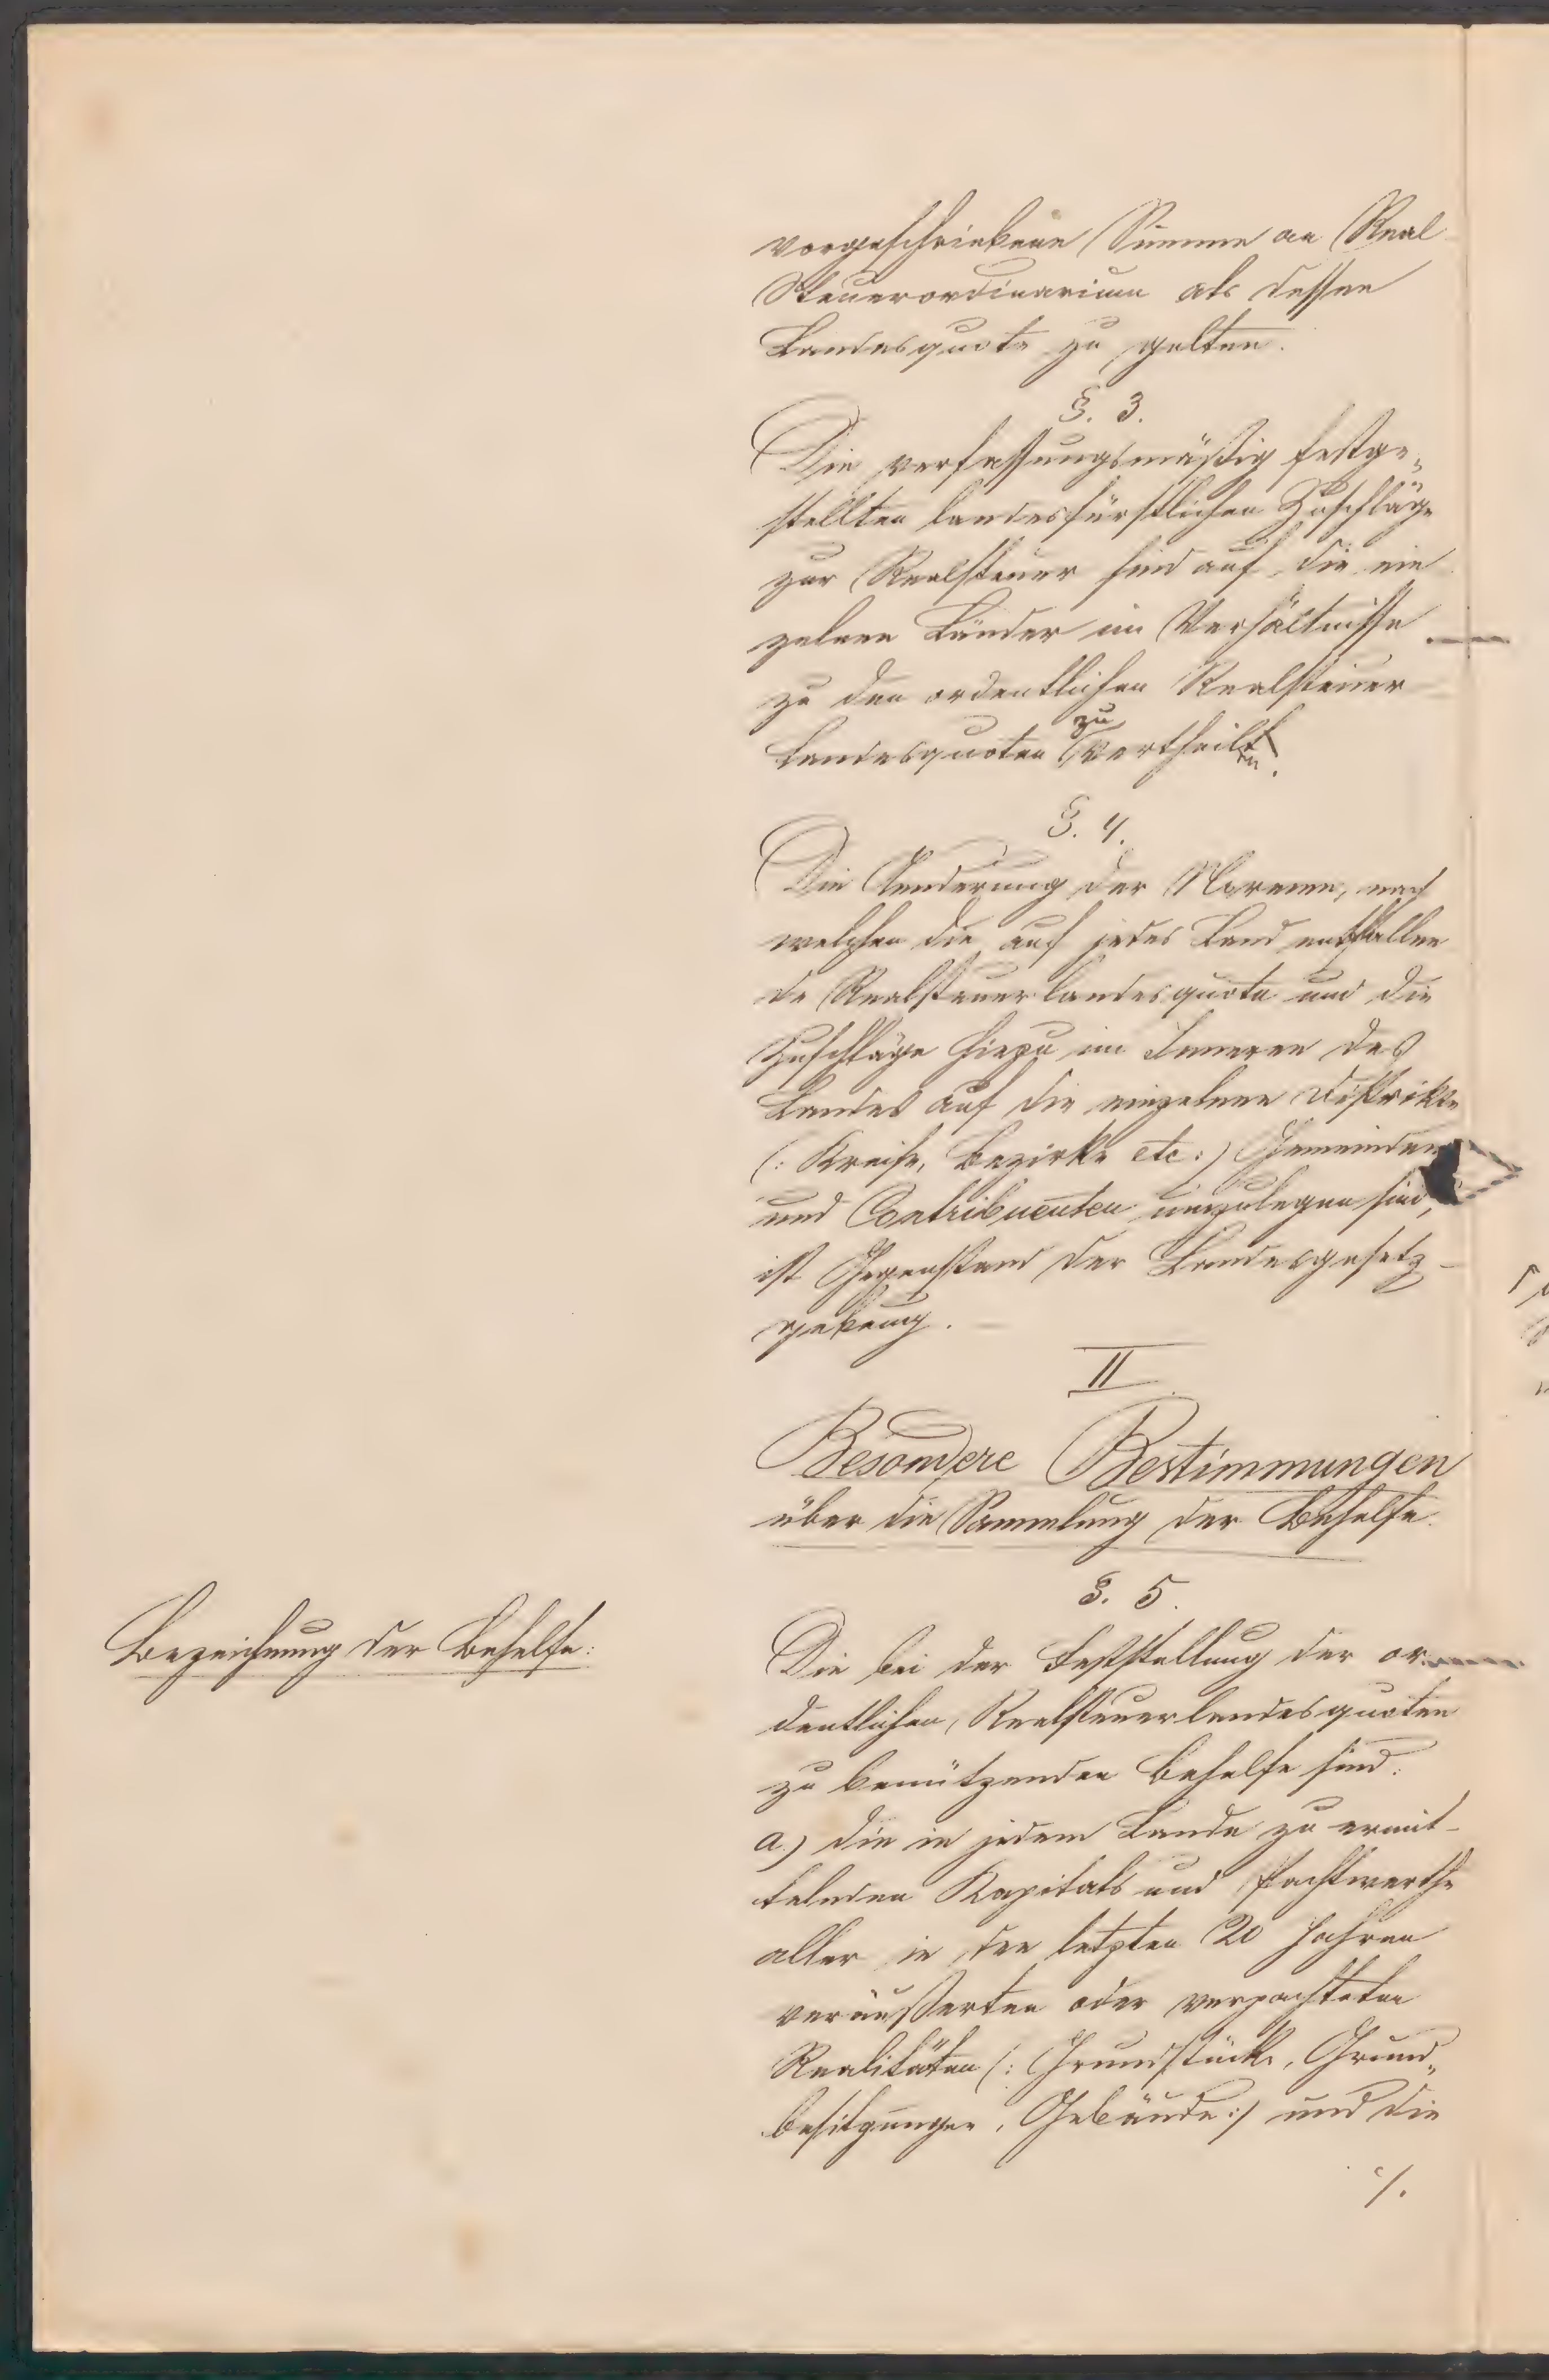 vorgeschriebene Summe an Real
Steuerordinarium als dessen
Landesquote zu gelten.
§. 3.
Die verfassungsmäßig festge„
stellten landesfürstlichen Zuschläge
zur Realsteuer sind auf die ein
zelnen Länder im Verhältnisse
zu den ordentlichen Realsteuer
Landesquoten zu vertheilen.
§. 4.
Die Aenderung der Normen, nach
welchen die auf jedes Land entfallen
de Realsteuerlandesquote und die
Zuschläge hiezu im Inneren des
Landes auf die einzelnen Distrikte
(: Kreise, Bezirke etc :) Gemeinden
und Contribuenten umzulegen sind,
ist Gegenstand der Landesgesetz-
gebung.
II
Besondere Bestimmungen
über die Sammlung der Behelfe.
§. 5.
Bezeichnung der Behelfe:
Die bei der Feststellung der or
dentlichen Realsteuerlandesquoten
zu benützenden Behelfe sind:
a.) die in jedem Lande zu ermit-
telnden Kapitals und Pachtwerthe
aller in den letzten 20 Jahren
veräußerten oder verpachteten
Realitäten (: Grundstücke, Grund„
besitzungen, Gebäude :) und die
./.